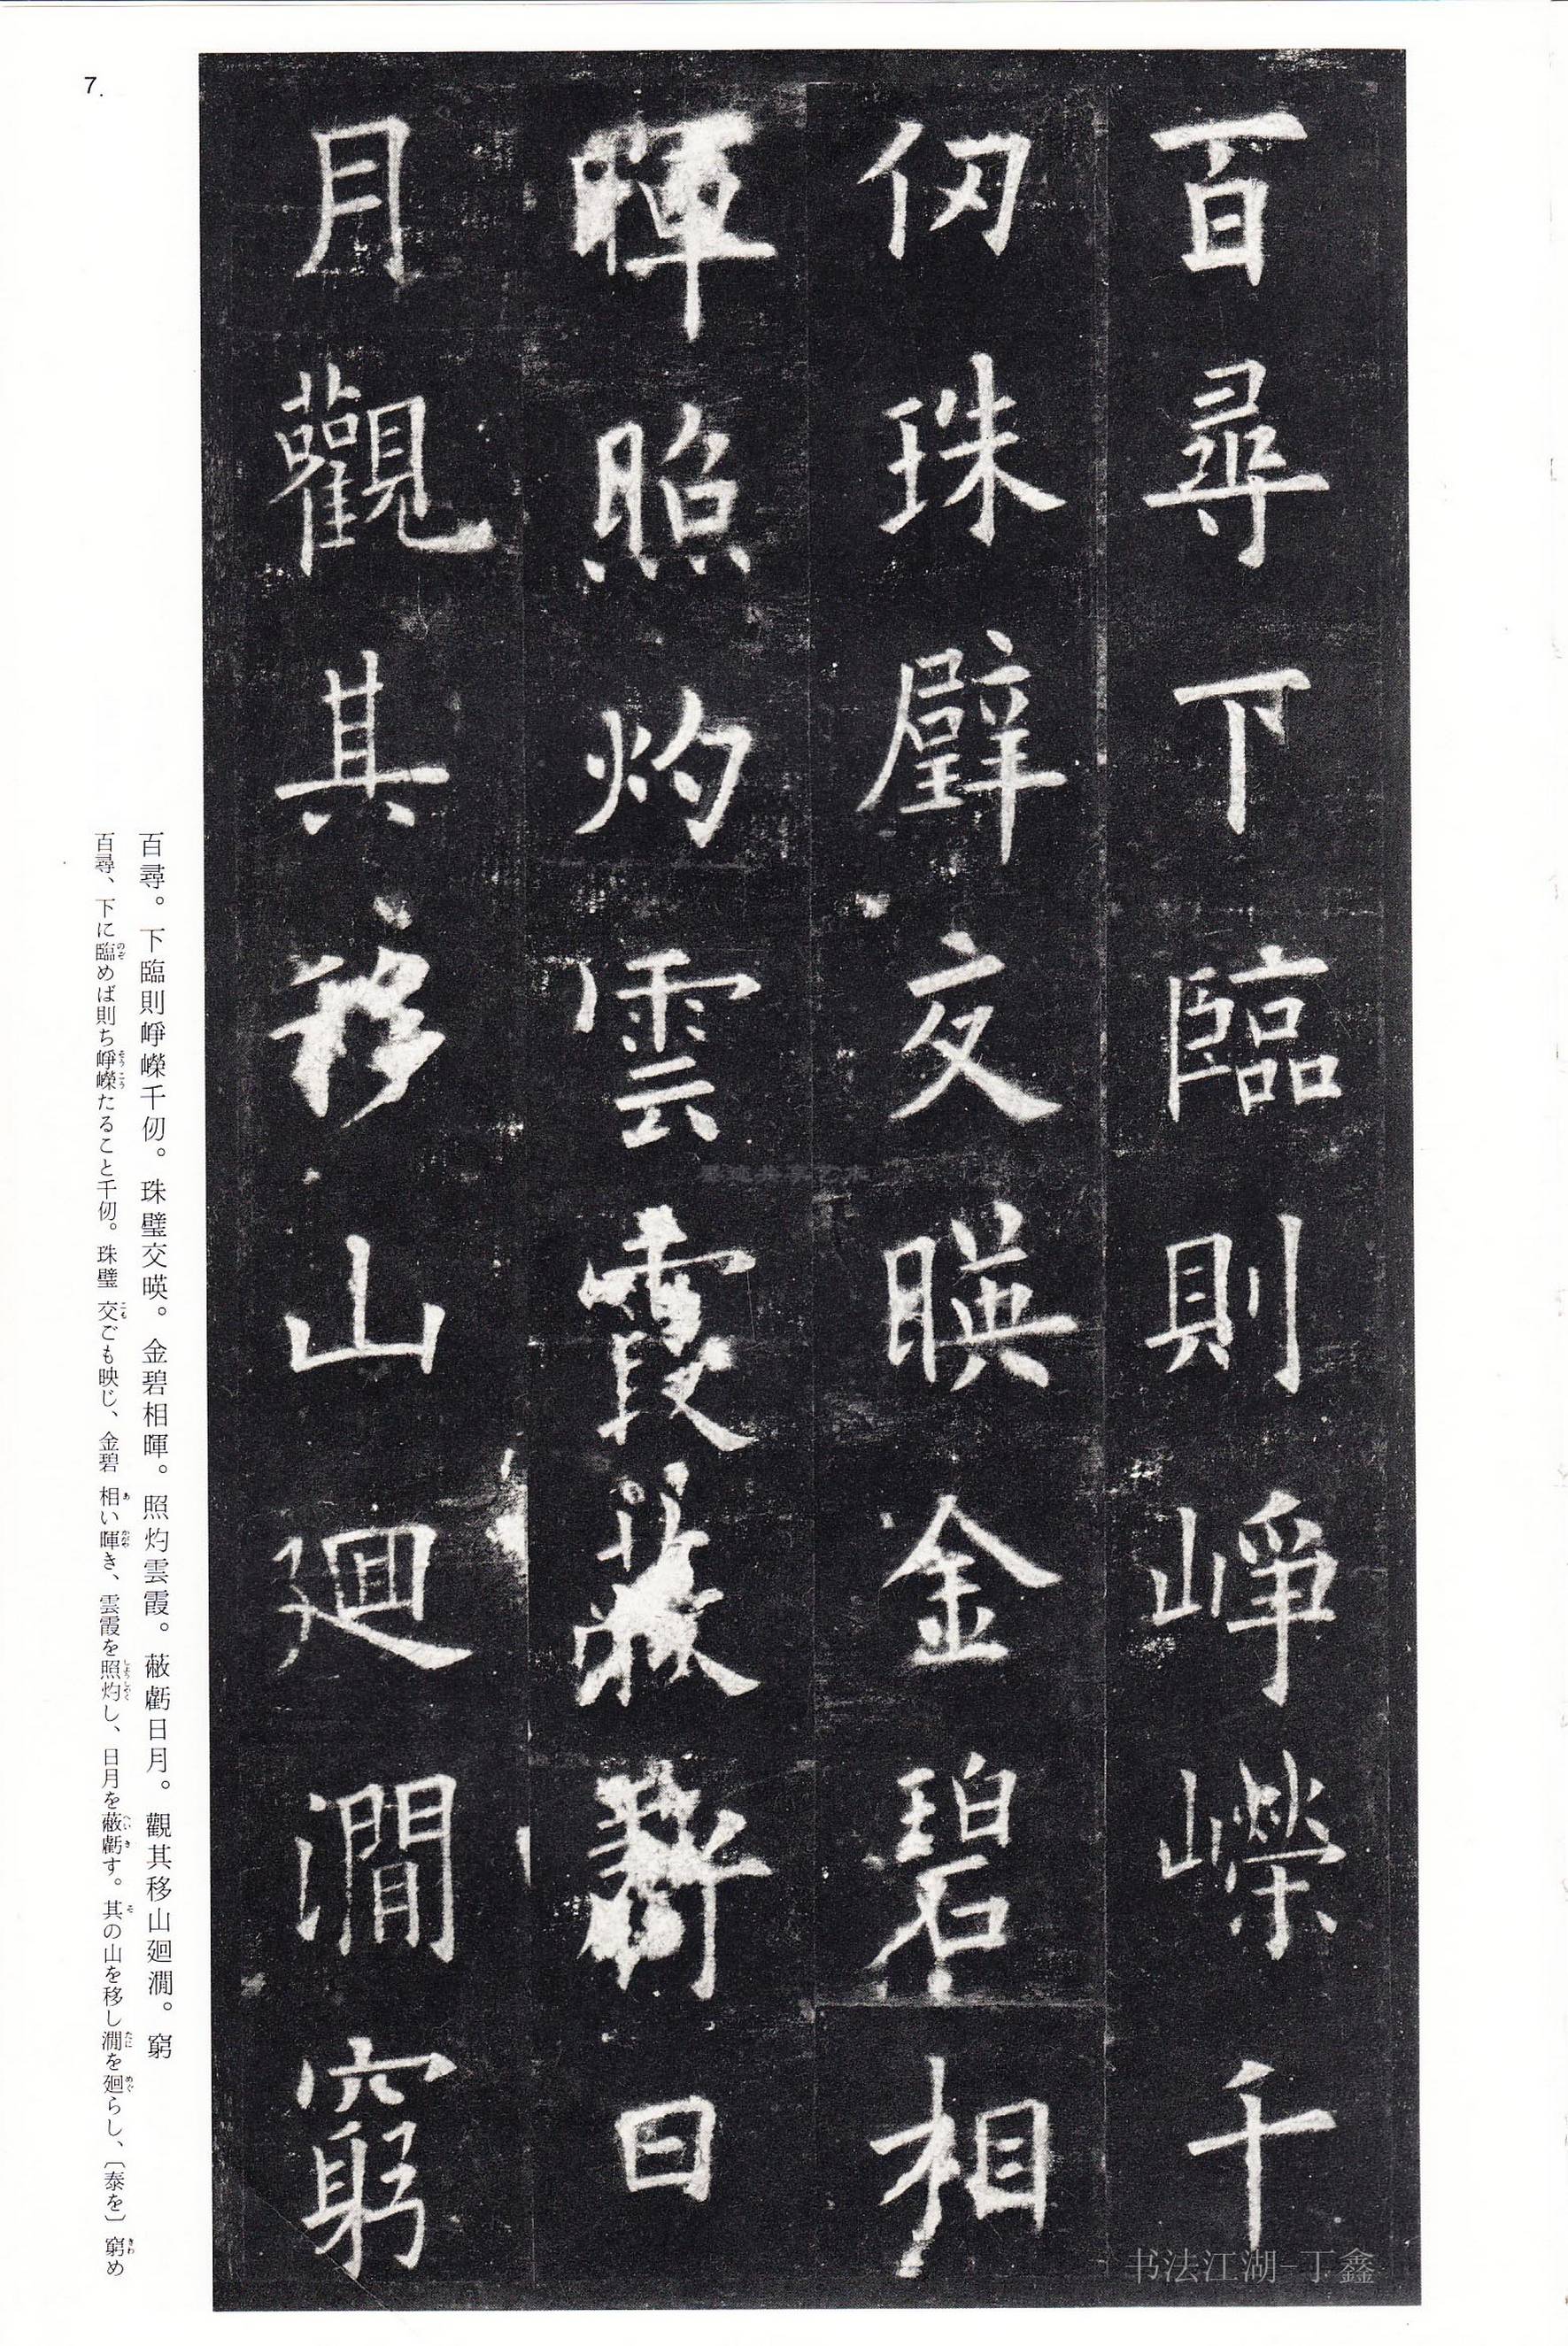 百尋下臨則崢嶸千
仞珠璧交暎金碧相
暉照灼雲霞蔽虧日
月觀其移山廻澗窮
百尋。下臨則崢嶸千仞。珠璧交暎。金碧相暉。照灼雲霞。蔽虧日月。觀其移山廻澗。窮
百尋、下に臨めば則ち崢嶸たること千仞。珠璧交ごも映じ、金碧相い暉き、雲霞を照灼し、日月を蔽虧す。其の山を移し澗を廻らし、〔泰を〕窮め
7.
书法江湖-丁鑫